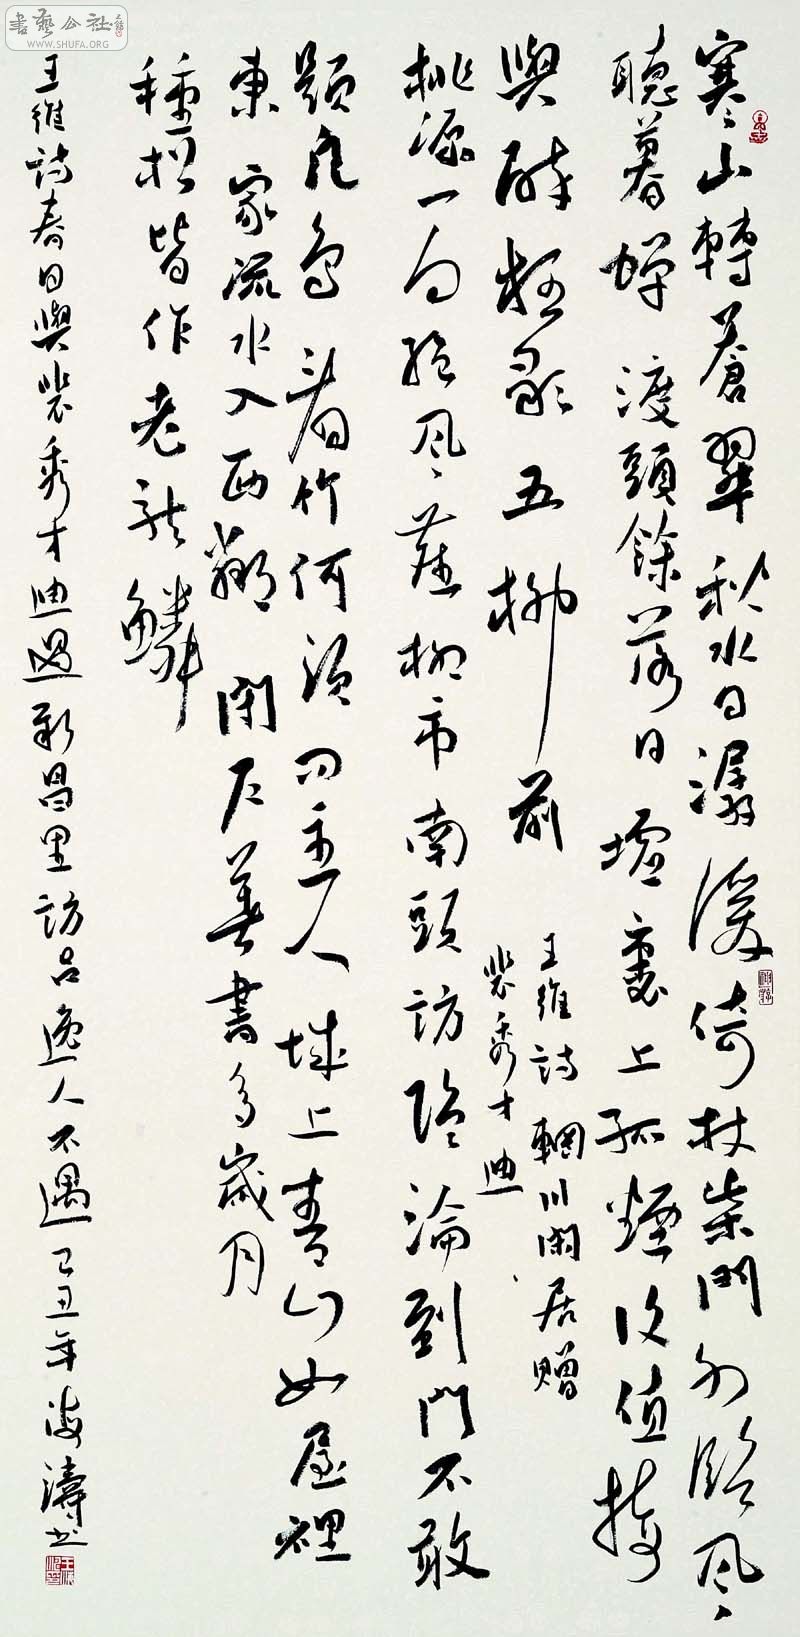 書藝公社
WWW.SHUFA.ORG
寒山轉蒼翠秋水日潺湲倚杖柴門外臨風
聽暮蟬渡頭餘落日墟裏上孤煙復值接
與醉狂歌五柳前
王維詩輞川閑居贈
裴秀才迪
桃源一向絕風塵柳市南頭訪隱淪到門不敢
題凡鳥看竹何須問主人城上青山如屋裡
東家流水入西鄰閉戶著書多歲月
種松皆作老龍鱗
王維詩春日與裴秀才迪過新昌里訪呂逸人不遇己丑年海濤书